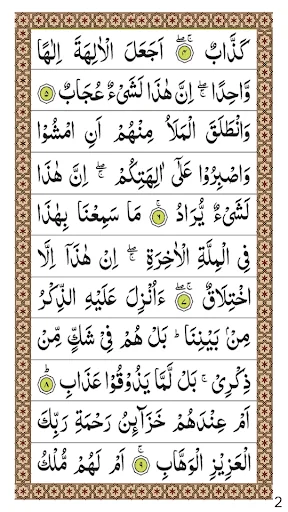 كَذَّابٌ ۖۚ ۴ اَجَعَلَ الْاٰلِهَةَ اِلٰهًا
وَّاحِدًا ۖۚ اِنَّ هٰذَا لَشَیْءٌ عُجَابٌ ۵
وَانْطَلَقَ الْمَلَاُ مِنْهُمْ اَنِ امْشُوْا
وَاصْبِرُوْا عَلٰۤی اٰلِهَتِكُمْ ۖۚ اِنَّ هٰذَا
لَشَیْءٌ یُّرَادُ ۖۚ ۶ مَا سَمِعْنَا بِهٰذَا
فِی الْمِلَّةِ الْاٰخِرَةِ ۖۚ اِنْ هٰذَاۤ اِلَّا
اخْتِلَاقٌ ۖۚ ۷ ءَاُنْزِلَ عَلَیْهِ الذِّكْرُ
مِنْۢ بَیْنِنَا ؕ بَلْ هُمْ فِیْ شَكٍّ مِّنْ
ذِكْرِیْ ۚ بَلْ لَّمَّا یَذُوْقُوْا عَذَابِ ؕ ۸
اَمْ عِنْدَهُمْ خَزَآئِنُ رَحْمَةِ رَبِّكَ
الْعَزِیْزِ الْوَهَّابِ ۚ ۹ اَمْ لَهُمْ مُّلْكُ
2